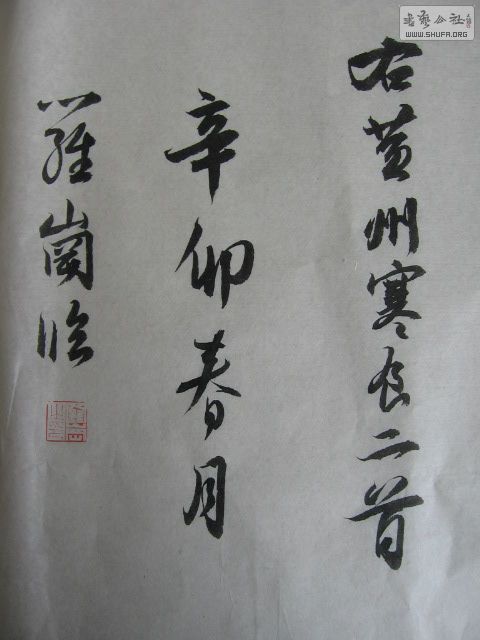 右黄州寒食二首
辛卯春月
羅崗臨
書藝公社
WWW.SHUFA.ORG